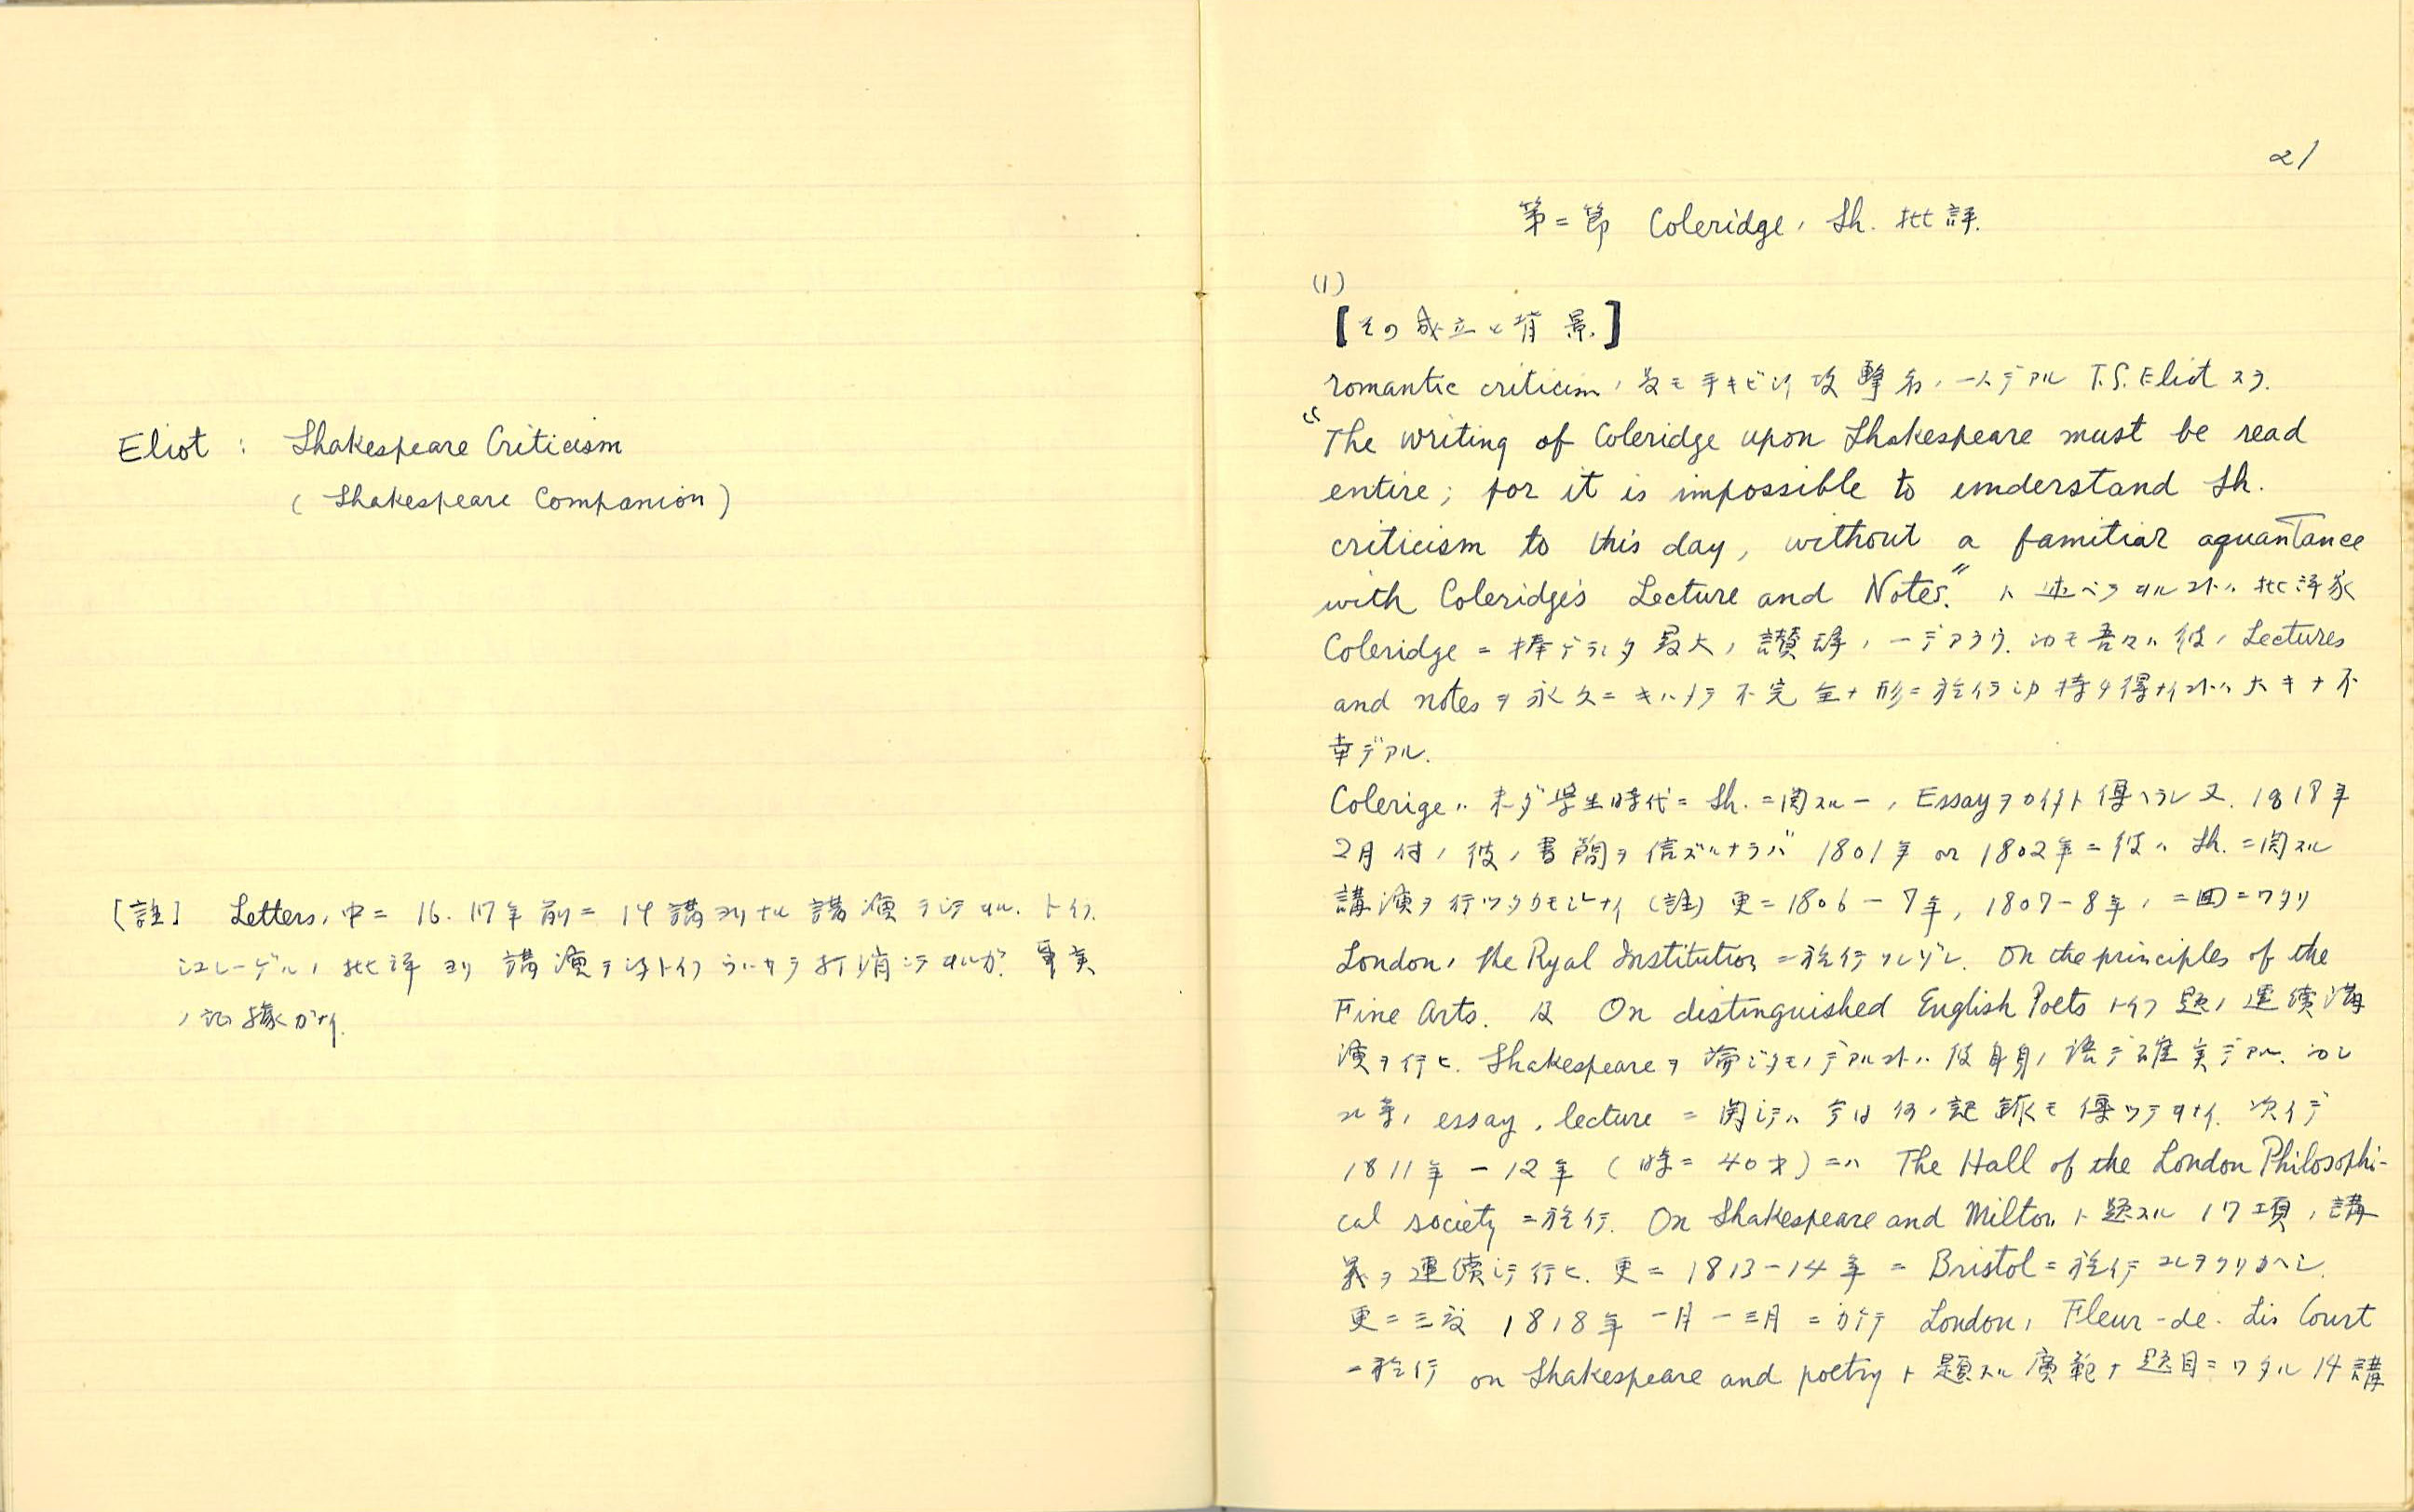 Eliot : Shakespeare Criticism
( Shakespeare Companion )
[註] Letters, 中ニ 16. 17年前ニ 14講ヨリナル講演ヲシテヰル. トイフ.
シュレーゲル, 批評ヨリ 講演 打消シテヰルガ. 事実
ガナイ.
21
第二節 Coleridge, Sh. 批評.
(1)
[その成立と背景.]
romantic criticism, 最モ手キビシイ攻撃者, 一人デアル T.S. Eliot スラ.
"The writing of Coleridge upon Shakespeare must be read
entire; for it is impossible to understand Sh.
criticism to this day, without a familiar aquantance
with Coleridge's Lecture and Notes." ト述ベテヰルコトハ批評家
Coleridge ニ捧ゲラレタ最大, 讃辞, 一デアラウ. 而モ吾々ハ彼, Lectures
and notes ヲ永久ニキハメテ不完全ナ形ニ於イテシカ持チ得ナイコトハ大キナ不
幸デアル.
Colerige ハ 未ダ學生時代ニ Sh. ニ関スル一, Essay ヲカイタト傳ヘラレ又. 1818年
2月付, 彼, 書簡ヲ信ズルナラバ 1801年 or 1802年ニ彼ハ Sh. ニ関スル
講演ヲ行ッタカモシレナイ (註) 更ニ 1806 - 7年, 1807-8年, 二回ニワタリ
London, the Ryal Institution ニ於イテソレゾレ. On the principles of the
Fine Arts. 及 On distinguished English Poets トイフ題, 連續講
演ヲ行ヒ. Shakespeare ヲ論ジタモノデアルコトハ彼自身, 語デ確実デアル. 而シ
コレ等, essay, lecture ニ関シテハ今日何, 記録モ傳ッテヰナイ. 次イデ
1811年 - 12年 (時ニ 40才) ニハ The Hall of the London Philosophi-
cal society ニ於イテ. On Shakespeare and Milton ト題スル 17項, 講
義ヲ連續シテ行ヒ. 更ニ 1813-14年ニ Bristol ニ於イテコレヲクリカヘシ.
更ニ三度 1818年 一月-三月ニカケテ London, Fleur-de-Lis Court
ニ於イテ on Shakespeare and poetry ト題スル廣範ナ題目ニワタル 14講